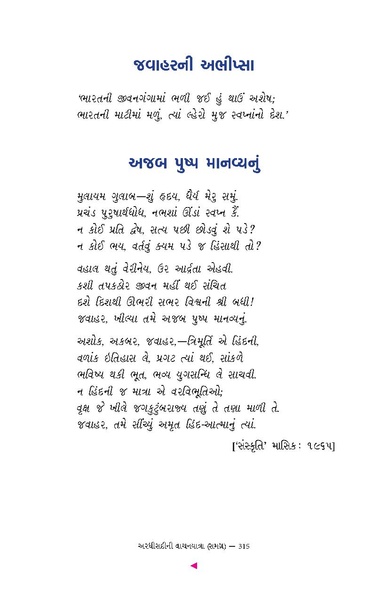 જવાહરની અભીપ્સા
‘ભારતની જીવનગંગામાં ભળી જઈ હું થાઉં અશેષ;
ભારતની માટીમાં મળું, ત્યાં લ્હેરો મુજ સ્વપ્નાંનો દેશ.’
અજબ પુષ્પ માનવ્યનું
મુલાયમ ગુલાબ—શું હૃદય, ધૈર્ય મેરુ સમું.
પ્રચંડ પુરુષાર્થધોધ, નભશાં ઊંડાં સ્વપ્ન કૈં.
ન કોઈ પ્રતિ દ્વેષ, સત્ય પછી છોડવું શે પડે?
ન કોઈ ભય, વર્તવું ક્યમ પડે જ હિંસાથી તો?
વહાલ થતું વેરીનેય, ઉર આર્દ્રતા એહવી.
કશી તપકઠોર જીવન મહીં થઈ સંચિત
દશે દિશથી ઊભરી સભર વિશ્વની શ્રી બધી!
જવાહર, ખીલ્યા તમે અજબ પુષ્પ માનવ્યનું.
અશોક, અકબર, જવાહર,—ત્રિમૂર્તિ એ હિંદની,
વળાંક ઇતિહાસ લે, પ્રગટ ત્યાં થઈ, સાંકળે
ભવિષ્ય થકી ભૂત, ભવ્ય યુગસન્ધિ લે સાચવી.
ન હિંદની જ માત્રા એ વરવિભૂતિઓ;
વૃક્ષ જે ખીલે જગકુટુંબરાજ્ય તણું તે તણા માળી તે.
જવાહર, તમે સીંચ્યું અમૃત હિંદ-આત્માનું ત્યાં.
[‘સંસ્કૃતિ’ માસિક: ૧૯૬૫]
અરધીસદીની વાચનયાત્રા (સમગ્ર) — 315